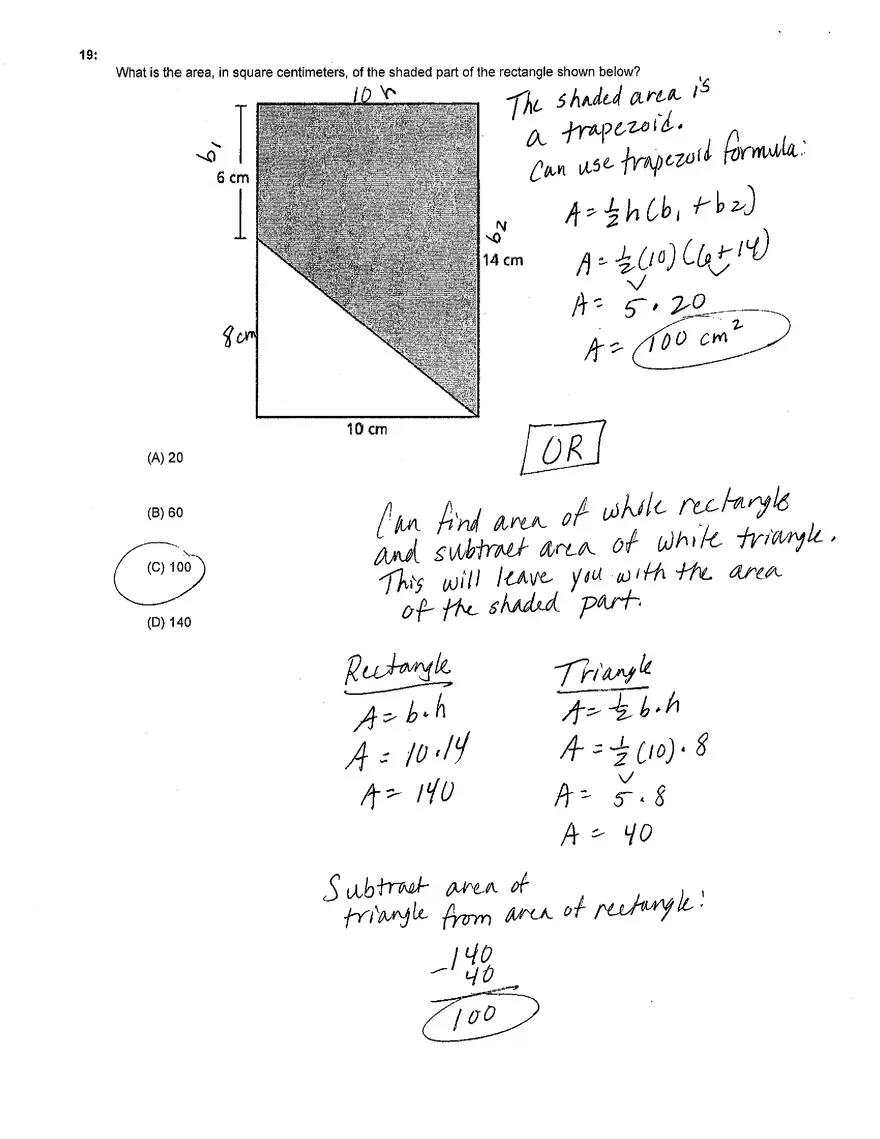 19:
What is the area, in square centimeters, of the shaded part of the rectangle shown below?
10 h
b1
6 cm
b2
14 cm
8 cm
10 cm
The shaded area is
a trapezoid.
Can use trapezoid formula:
A = 1/2 h (b1 + b2)
A = 1/2 (10) (6 + 14)
A = 5 · 20
A = 100 cm²
(A) 20
(B) 60
(C) 100
(D) 140
OR
Can find area of whole rectangle
and subtract area of white triangle.
This will leave you with the area
of the shaded part.
Rectangle
A = b · h
A = 10 · 14
A = 140
Triangle
A = 1/2 b · h
A = 1/2 (10) · 8
A = 5 · 8
A = 40
Subtract area of
triangle from area of rectangle:
140
- 40
100